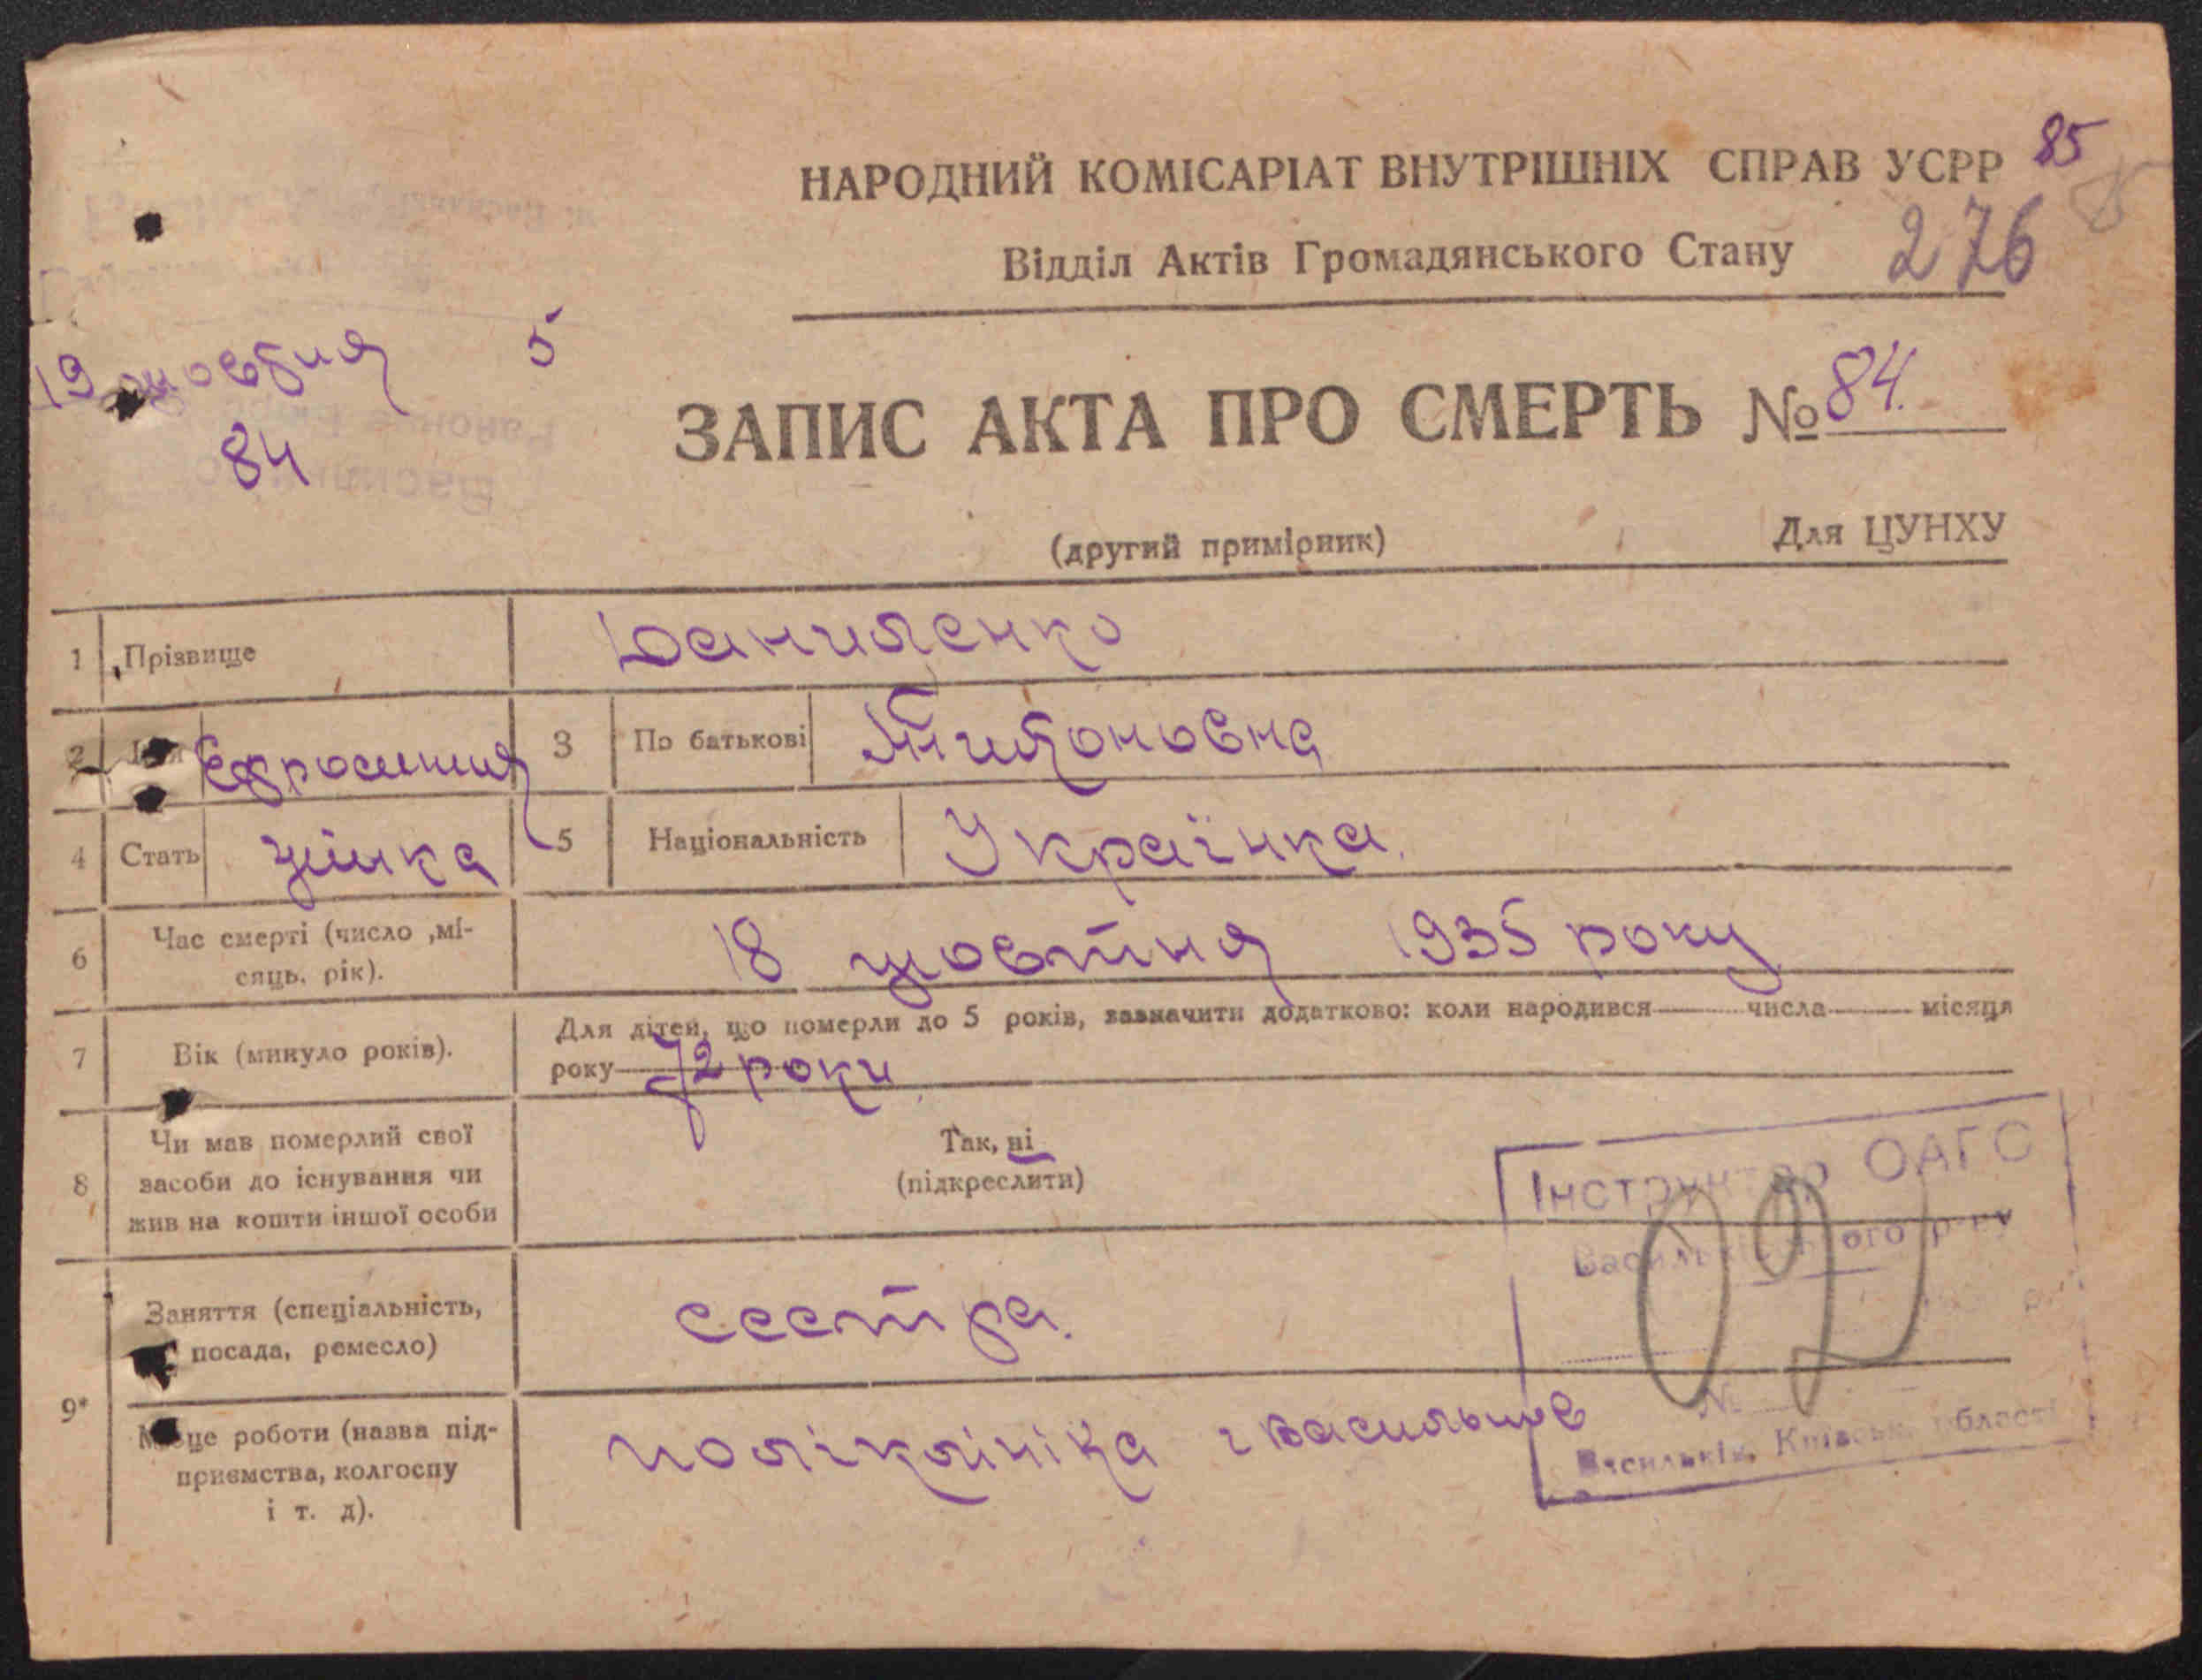 85
НАРОДНИЙ КОМІСАРІАТ ВНУТРІШНІХ СПРАВ УСРР
Відділ Актів Громадянського Стану 276
19 жовтня 5
84
ЗАПИС АКТА ПРО СМЕРТЬ № 84.
(другий примірник) Для ЦУНХУ
1 Прізвище Даниленко
2 Єфросиния 3 По батькові Тихоновна
4 Стать жінка 5 Національність Українка.
6 Час смерті (число ,мі-
сяць, рік). 18 жовтня 1935 року
7 Вік (минуло років). Для дітей, що померли до 5 років, зазначити додатково: коли народився числа місяця
року 72 роки
8 Чи мав померлий свої
засоби до існування чи
жив на кошти іншої особи
Так, ні
(підкреслити)
9*
Заняття (спеціальність,
посада, ремесло) сестра.
Місце роботи (назва під-
приємства, колгоспу
і т. д).
поліклініка г Васильків
Інструктор ОАГС
Васильківського р-ну
№
Васильків, Київськ. області